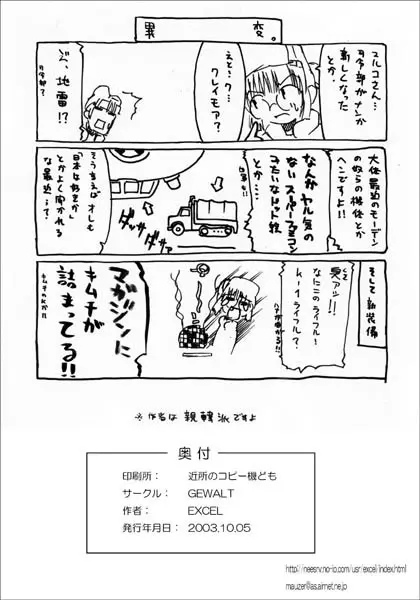 異変。
スルコさん…
司令部がナンか
新しくなった
とか。
えと…ク…
クレイモア?
ジ、地雷!?
司令部?
大体 最近のモーデン
の奴らの機体とか
ヘンですよ!!
なんか ヤル気の
ないスーパーファミコン
みたいなドット絵
とか…
ダッサ
ダサァ
そういえば オレも
「日本は好きか」
とかよく聞かれる
な最近…って
そして新装備
くさ
臭アッ!!
なにこのライフル…
ルートライフル?
マガジンに
キムチが
詰まってる!!
※作者は親韓派ですよ
奥付
印刷所: 近所のコピー機ども
サークル: GEWALT
作者: EXCEL
発行年月日: 2003.10.05
http://neesrv.no-io.com/usr/excel/index.html
mauzer@as.airnet.ne.jp